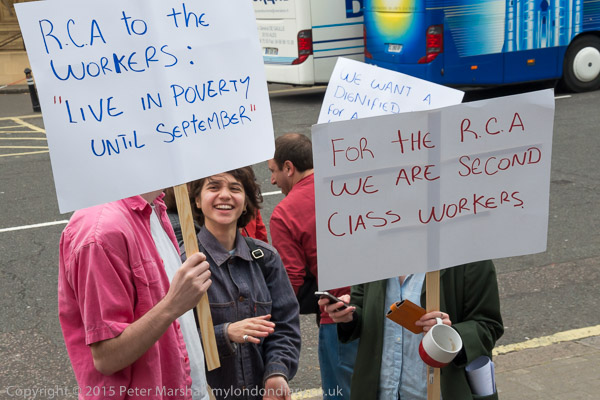 R.C.A TO THE
WORKERS:
"LIVE IN POVERTY
UNTIL SEPTEMBER"
WE WANT A
DIGNIFIED
FOR THE R.C.A
WE ARE SECOND
CLASS WORKERS.
Copyright © 2015 Peter Marshall mylondondiary.co.uk